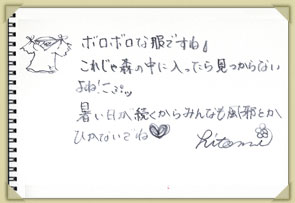 ボロボロな服ですね!
これじゃ森の中に入ったら見つからない
よね!
暑い日が続くからみんなも風邪とか
ひかないでね♥ hitomi